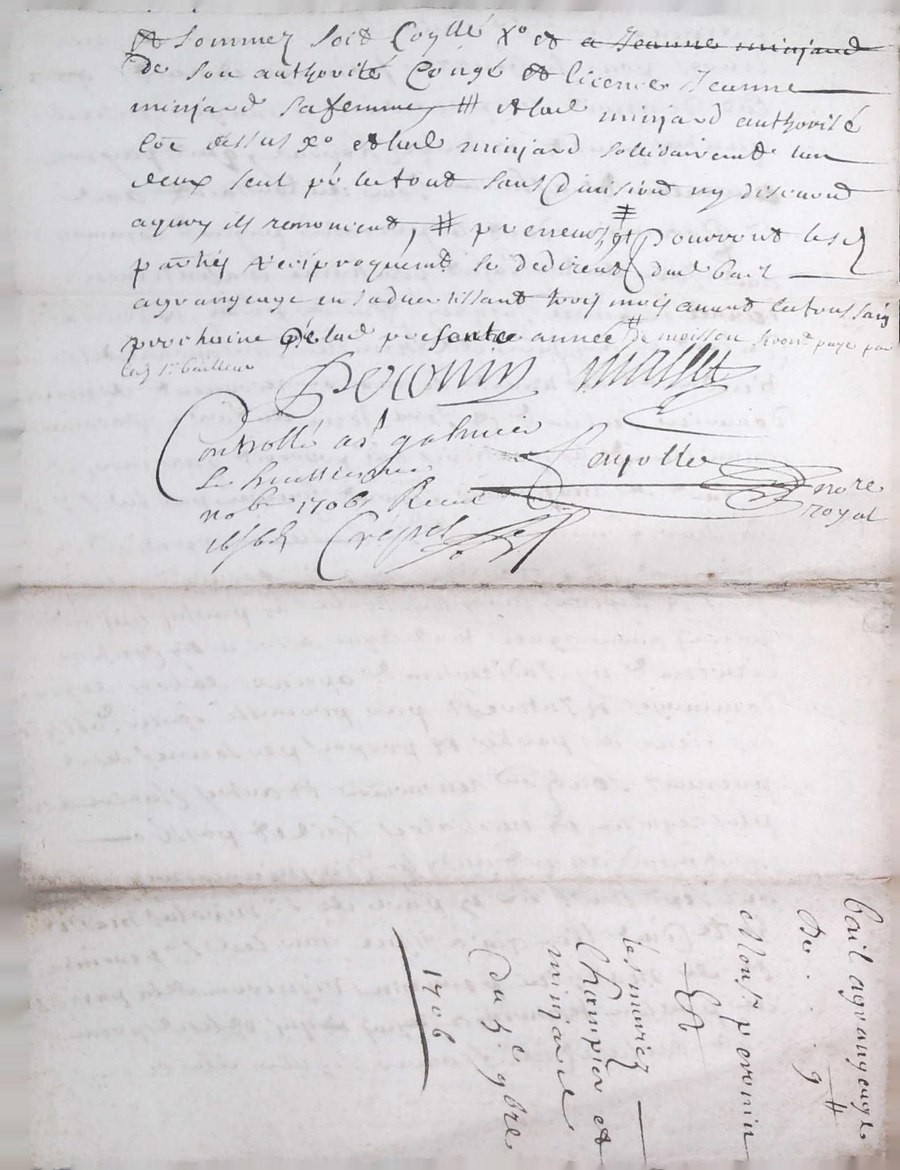 et sommez soit Coyllé Xo et a Jeanne minjard
de son authorité Congé et licence Jeanne
minjard sa femme, # et lad minjard authorisé
Coe dessus Xo et lad minjard sollidairement lun
deux seul pr le tout sans Division ny discution
aquoy ils renoncent, # prereneurs # et pourront lesd
parties reciproquemt se dedirent dud bail
agrangeage en sadvertissant trois mois avant la toussaint
prochaine de lad presente année # de moisson seront payé par
led sr bailleur
Peronin
Controllé a st galmier
Le huittieme
nobre 1706 Receu
Crepet
fayolle nore
royal
bail agrangeage
De . . . 9
Mons peronin
A
les mariez
Champier et
minjard
Du 7e 9bre
1706